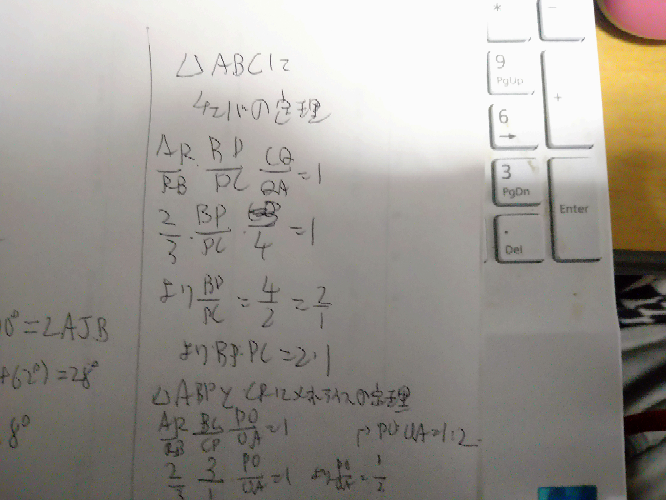 △ABCに
チェバの定理
AR/RB・BP/PC・CQ/QA=1
2/3・BP/PC・/4=1
より BP/PC=4/2=2/1
より BP:PC=2:1
△ABPと CRにメネラウスの定理
AR/RB BC/CP PO/OA=1
PO:OA=1:2
2/3 3/1 PO/OA=1 より PO/OA=1/2
0°=∠AJB
+62°)=28°
8°
*
-
9
PgUp
+
6
→
3
PgDn
Enter
.
Del